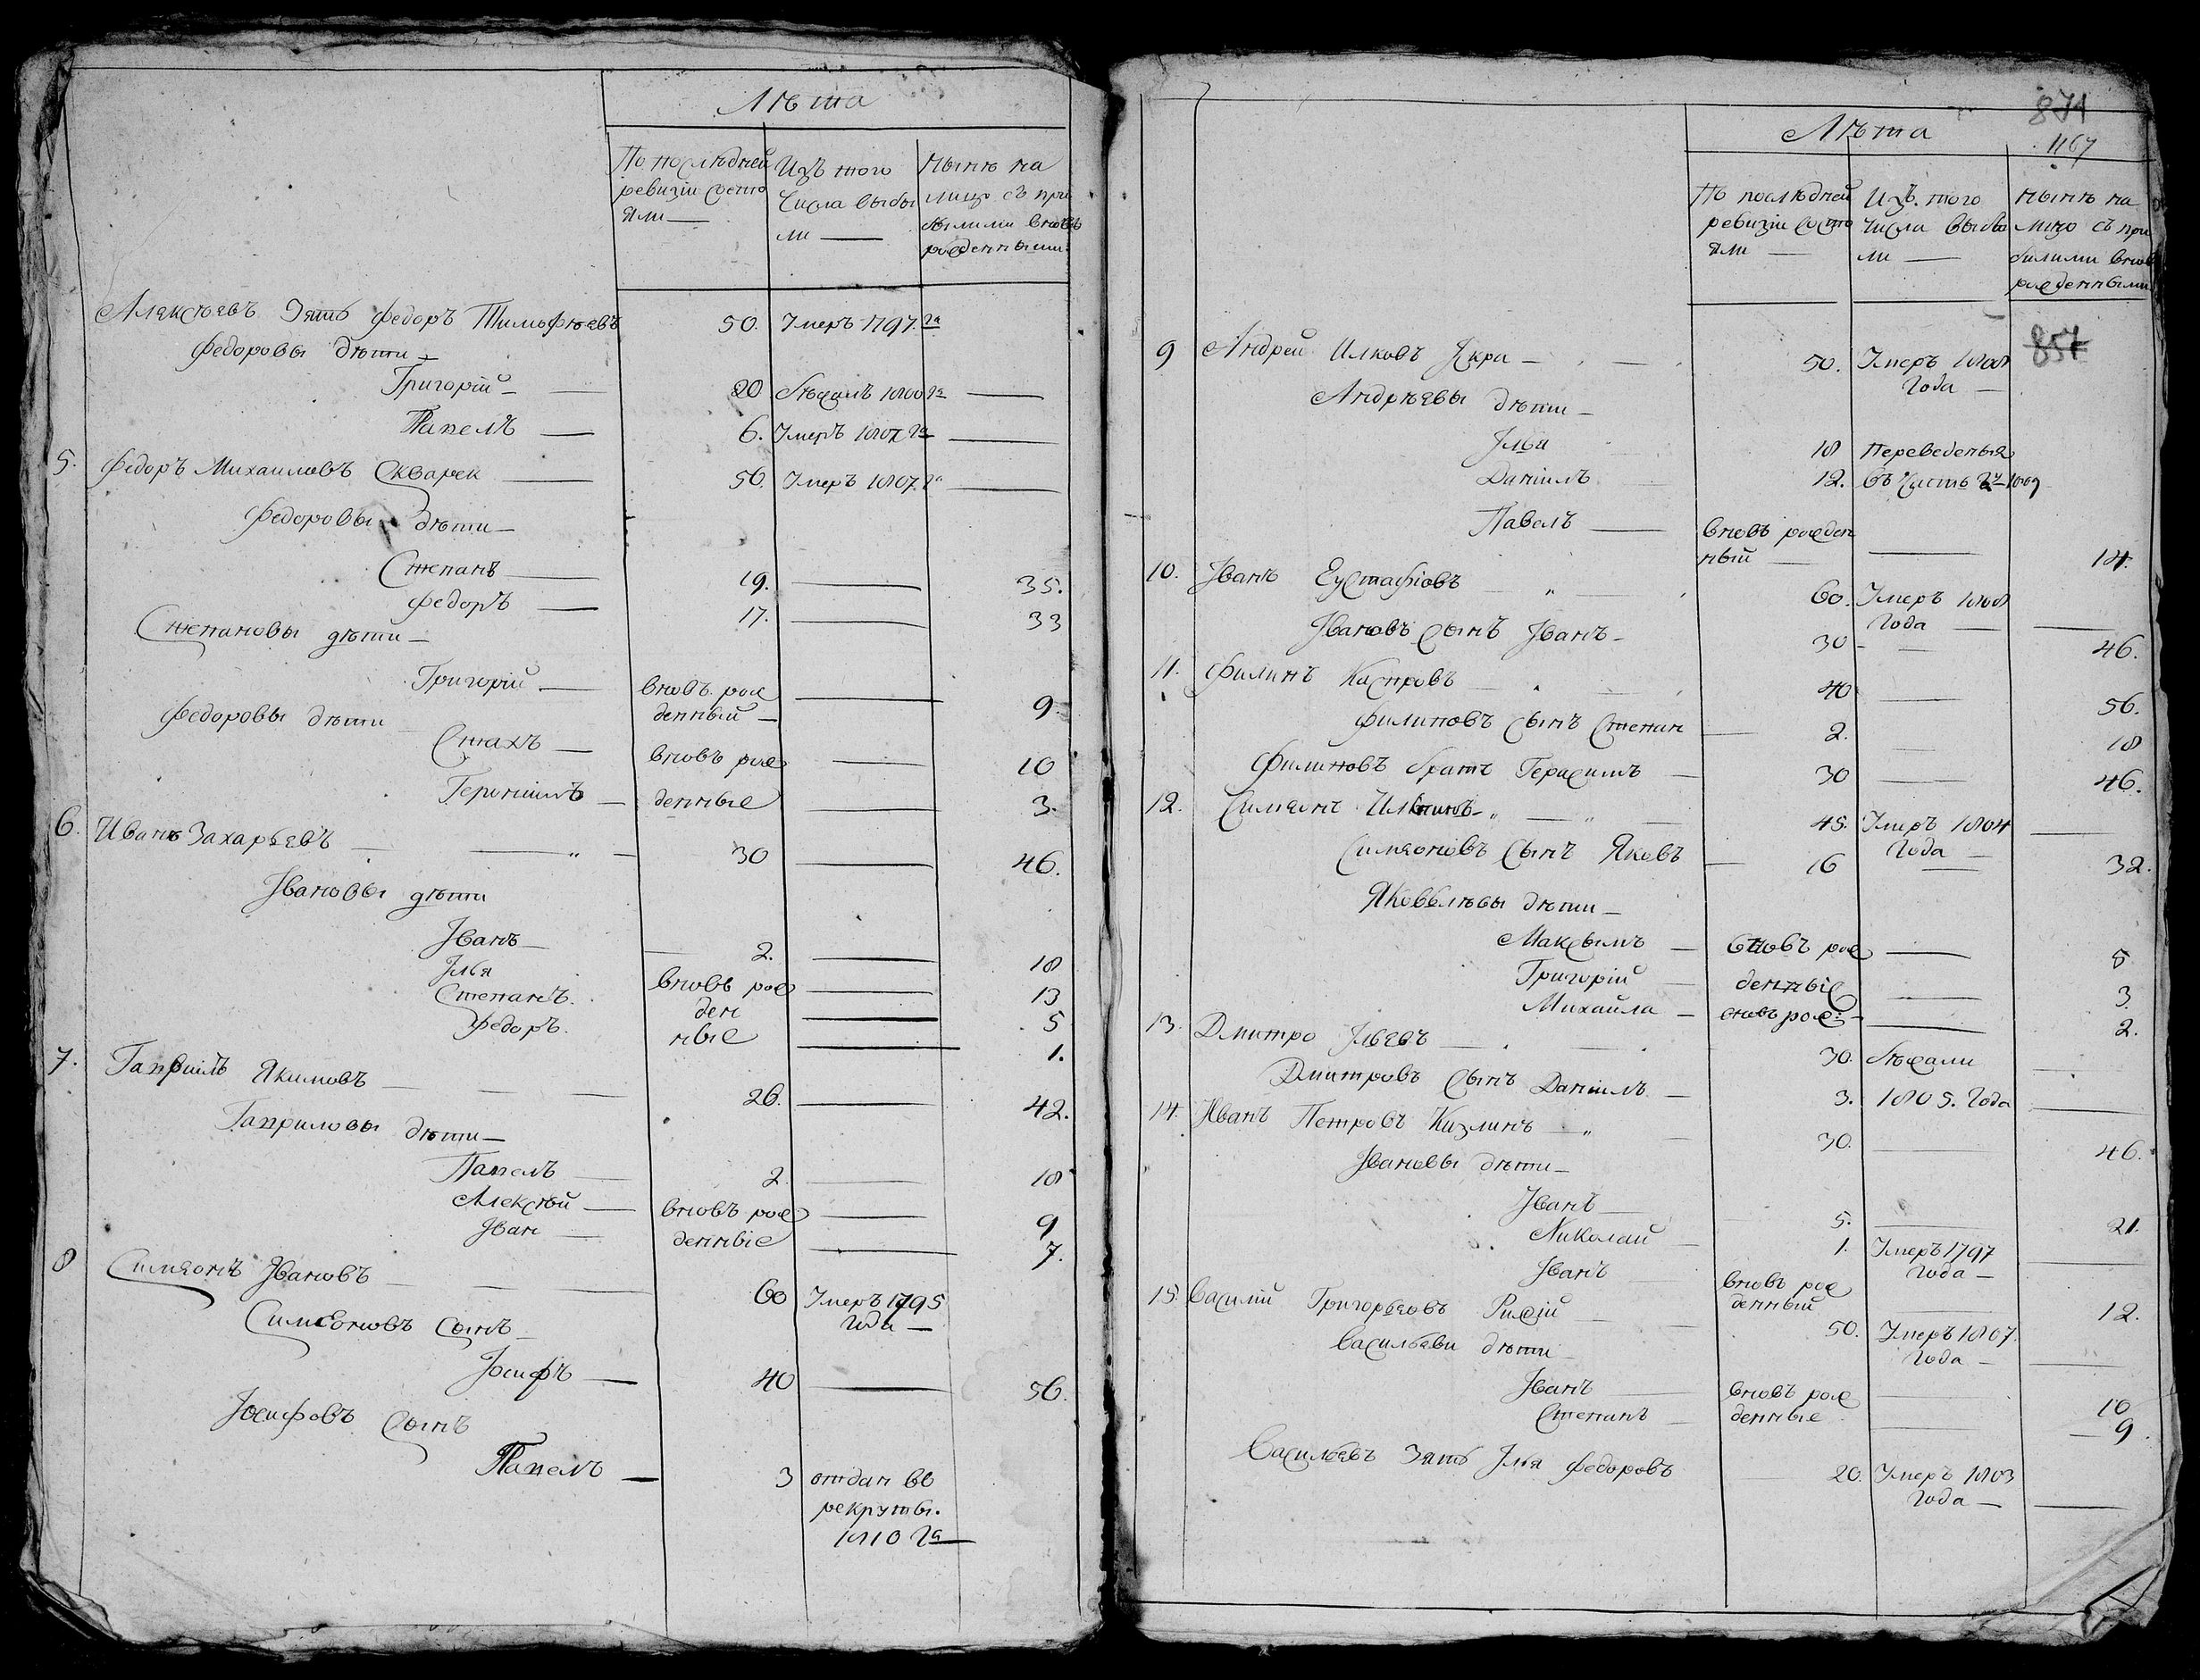 Лѣта
По послѣдней ревизіи состояли — Изъ того числа выбыли — Нынѣ на лицо съ прибылими вновь рожденными
Алексѣевъ Зять Федоръ Тимофѣевъ 50. Умеръ 1797. га
Федоровы дѣти —
Григорій — 20 бѣжалъ 1800 га —
Павелъ — 6. Умеръ 1807 га —
5. Федоръ Михаиловъ Скварек — 50. Умеръ 1807. га —
Федоровы дѣти —
Степанъ — 19. — 35.
Федоръ — 17. — 33
Степановы дѣти —
Григорій — вновъ рож
денный — 9
Федоровы дѣти
Стахъ — вновъ рож — 10
Геронимъ — денные — 3.
6. Иванъ Захарьевъ — 30 — 46.
Івановы дѣти
Іванъ — 2. — 18
Ілья вновъ рож — 13
Степанъ. ден — 5
Федоръ. ные — 1.
7. Гавріилъ Якимовъ — 26. — 42.
Гавриловы дѣти —
Павелъ — 2 — 18
Алексѣй — вновъ рож — 9
Іван — денніе — 7.
8 Симеонъ Івановъ — 60 Умеръ 1795
года —
Симеоновъ Сынъ —
Іосифъ — 40 — 56.
Іосифовъ Сынъ
Павелъ — 3 отдан во
рекруты.
1810 га —
871
1167
Лѣта
По послѣдней ревизіи состояли — Изъ того числа выбыли — Нынѣ на лицо съ прибилими вновь рожденными
857
9 Андрей Илковъ Ікра — 50. Умеръ 1808
года —
Андрѣевы дѣти —
Ілья 18 Переведены
Даніилъ 12. въ Часть 2ю 1809
Павелъ — вновъ рожден
ный — 14.
10. Іванъ Еустафіовъ 60. Умеръ 1808
года —
Івановъ Сынъ Іванъ — 30 — 46.
11. Филипъ Каспровъ 40 — 56.
Филиповъ Сынъ Степан — 2. 18
Филиповъ братъ Герасимъ — 30 — 46.
12. Симеонъ — 45. Умеръ 1804 —
года —
Симеоновъ Сынъ Яковъ — 16 — 32.
Яковлѣвы дѣти —
Максымъ — вновъ рож — 5
Григорій — денніе — 3
Михайла — вновъ рож: — 2.
13. Дмитро Ільевъ — 30. бѣжали —
Дмитровъ Сынъ Даніилъ — 3. 1805. Года —
14. Иванъ Петровъ Кизлинъ — 30. — 46.
Івановы дѣти —
Іванъ — 5. — 21.
Николай — 1. Умеръ 1797
года —
Іванъ — вновъ рож
денный — 12.
15. Василій Григорьевъ Рижій — 50. Умеръ 1807.
года —
Васильеви дѣти —
Іванъ — вновъ рож — 10
Степанъ — денные — 9
Васильевъ Зять Ілья Федоровъ — 20. Умеръ 1803
года —